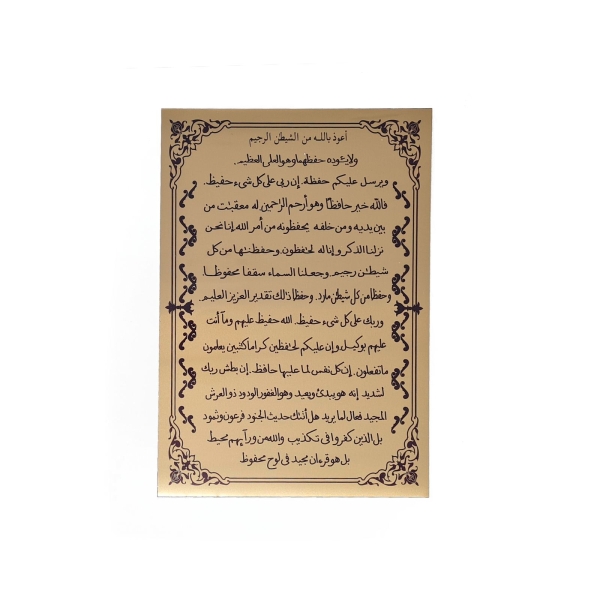 أعوذ بالله من الشيطن الرجيم
ولا يـُوده حفظهما وهو العلى العظيم.
ويرسل عليكم حفظة. إن ربى على كل شىء حفيظ.
فالله خير حافظا وهو أرحم الراحمين له معقبت من
بين يديه ومن خلفه يحفظونه من أمر الله إنا نحن
نزلنا الذكر وإنا له لحفظون. وحفظنها من كل
شيطن رجيم. وجعلنا السماء سقفا محفوظا.
وحفظا من كل شيطن مارد. وحفظا ذلك تقدير العزيز العليم.
وربك على كل شىء حفيظ. الله حفيظ عليهم وما أنت
عليهم بوكيل وإن عليكم لحفظين كراما كتبين يعلمون
ما تفعلون. إن كل نفس لما عليها حافظ. إن بطش ربك
لشديد إنه هو يبدئ ويعيد وهو الغفور الودود ذو العرش
المجيد فعال لما يريد هل أتك حديث الجنود فرعون وثمود
بل الذين كفروا فى تكذيب والله من ورآئهم محيط
بل هو قرءان مجيد فى لوح محفوظ